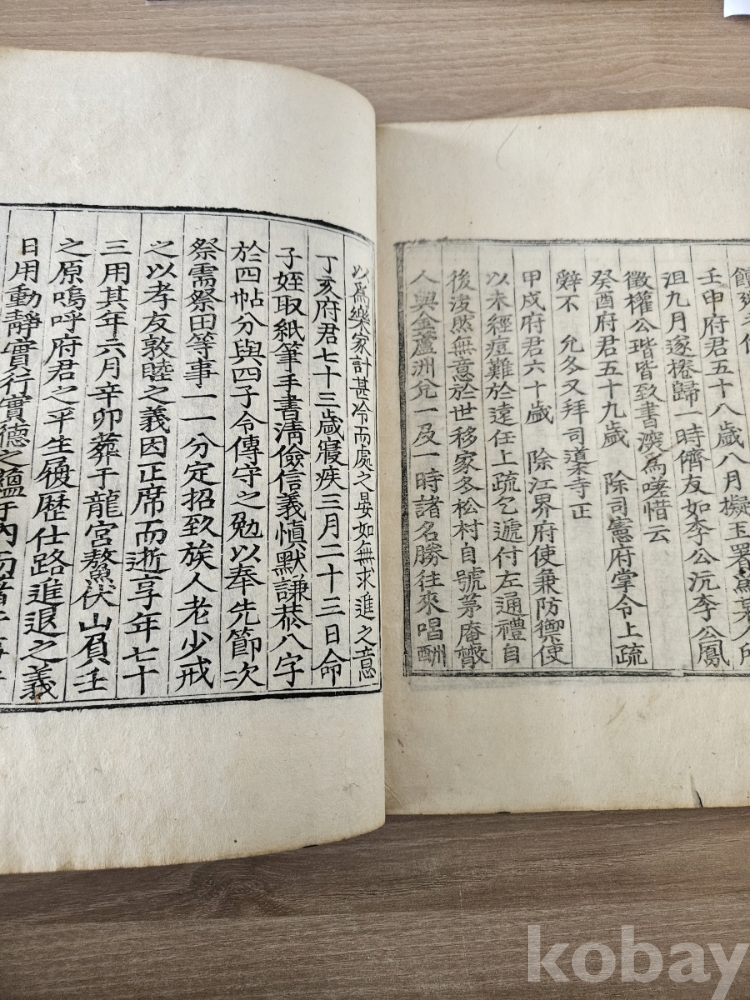 壬申府君五十八歲八月擬玉署爲衆人所
沮九月遂捲歸一時儕友如李公沆李公鳳
徵權公瑎皆致書深爲嗟惜云
癸酉府君五十九歲 除司憲府掌令上疏
辭不 允冬又拜司䆃寺正
甲戌府君六十歲 除江界府使兼防禦使
以未經痘難於遠任上疏乞遞付左通禮自
後泼然無意於世移家冬松村自號茅庵
人與金蘆洲兌一及一時諸名勝往來唱酬
以爲樂家計甚冷而處之晏如無求進之意
丁亥府君七十三歲寢疾三月二十三日命
子姪取紙筆手書淸儉信義愼默謙恭八字
於四帖分與四子令傳守之勉以奉先節次
祭需祭田等事一一分定招致族人老少戒
之以孝友敦睦之義因正席而逝享年七十
三用其年六月辛卯葬于龍宮鰲伏山負壬
之原嗚呼府君之平生履歷仕路進退之義
日用動靜實行實德之蘊于內而著
kobay